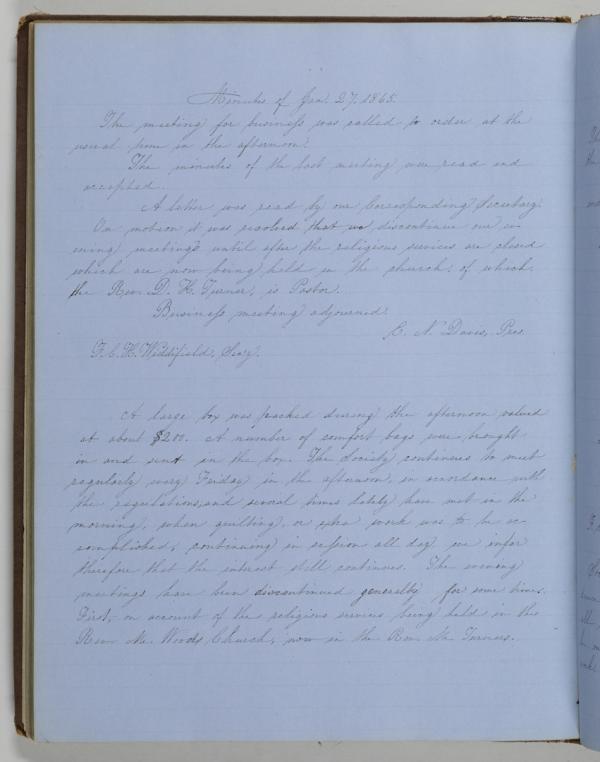 Minutes of Jan. 27. 1865.
The meeting for business was called to order at the
usual time in the afternoon.
The minutes of the last meeting were read and
accepted.
A letter was read by our Corresponding Secretary.
On motion it was resolved that we discontinue our ev-
ening meetings until after the religious services are closed
which are now being held in the church, of which
the Rev. D. K. Turner, is Pastor.
Business meeting adjourned.
C. N. Davis, Pres.
F. C. H. Widdifield, Secy.
A large box was packed during the afternoon valued
at about $200. A number of comfort bags were brought
in and sent in the box. The Society continues to meet
regularly every Friday in the afternoon, in accordance with
the regulations, and several times lately have met in the
morning, when quilting, or extra work was to be ac-
complished, continuing in session all day we infer
therefore that the interest still continues. The evening
meetings have been discontinued generally, for some time.
First, on account of the religious services being held in the
Rev. Mr. Woods Church, now in the Rev. Mr. Turners.